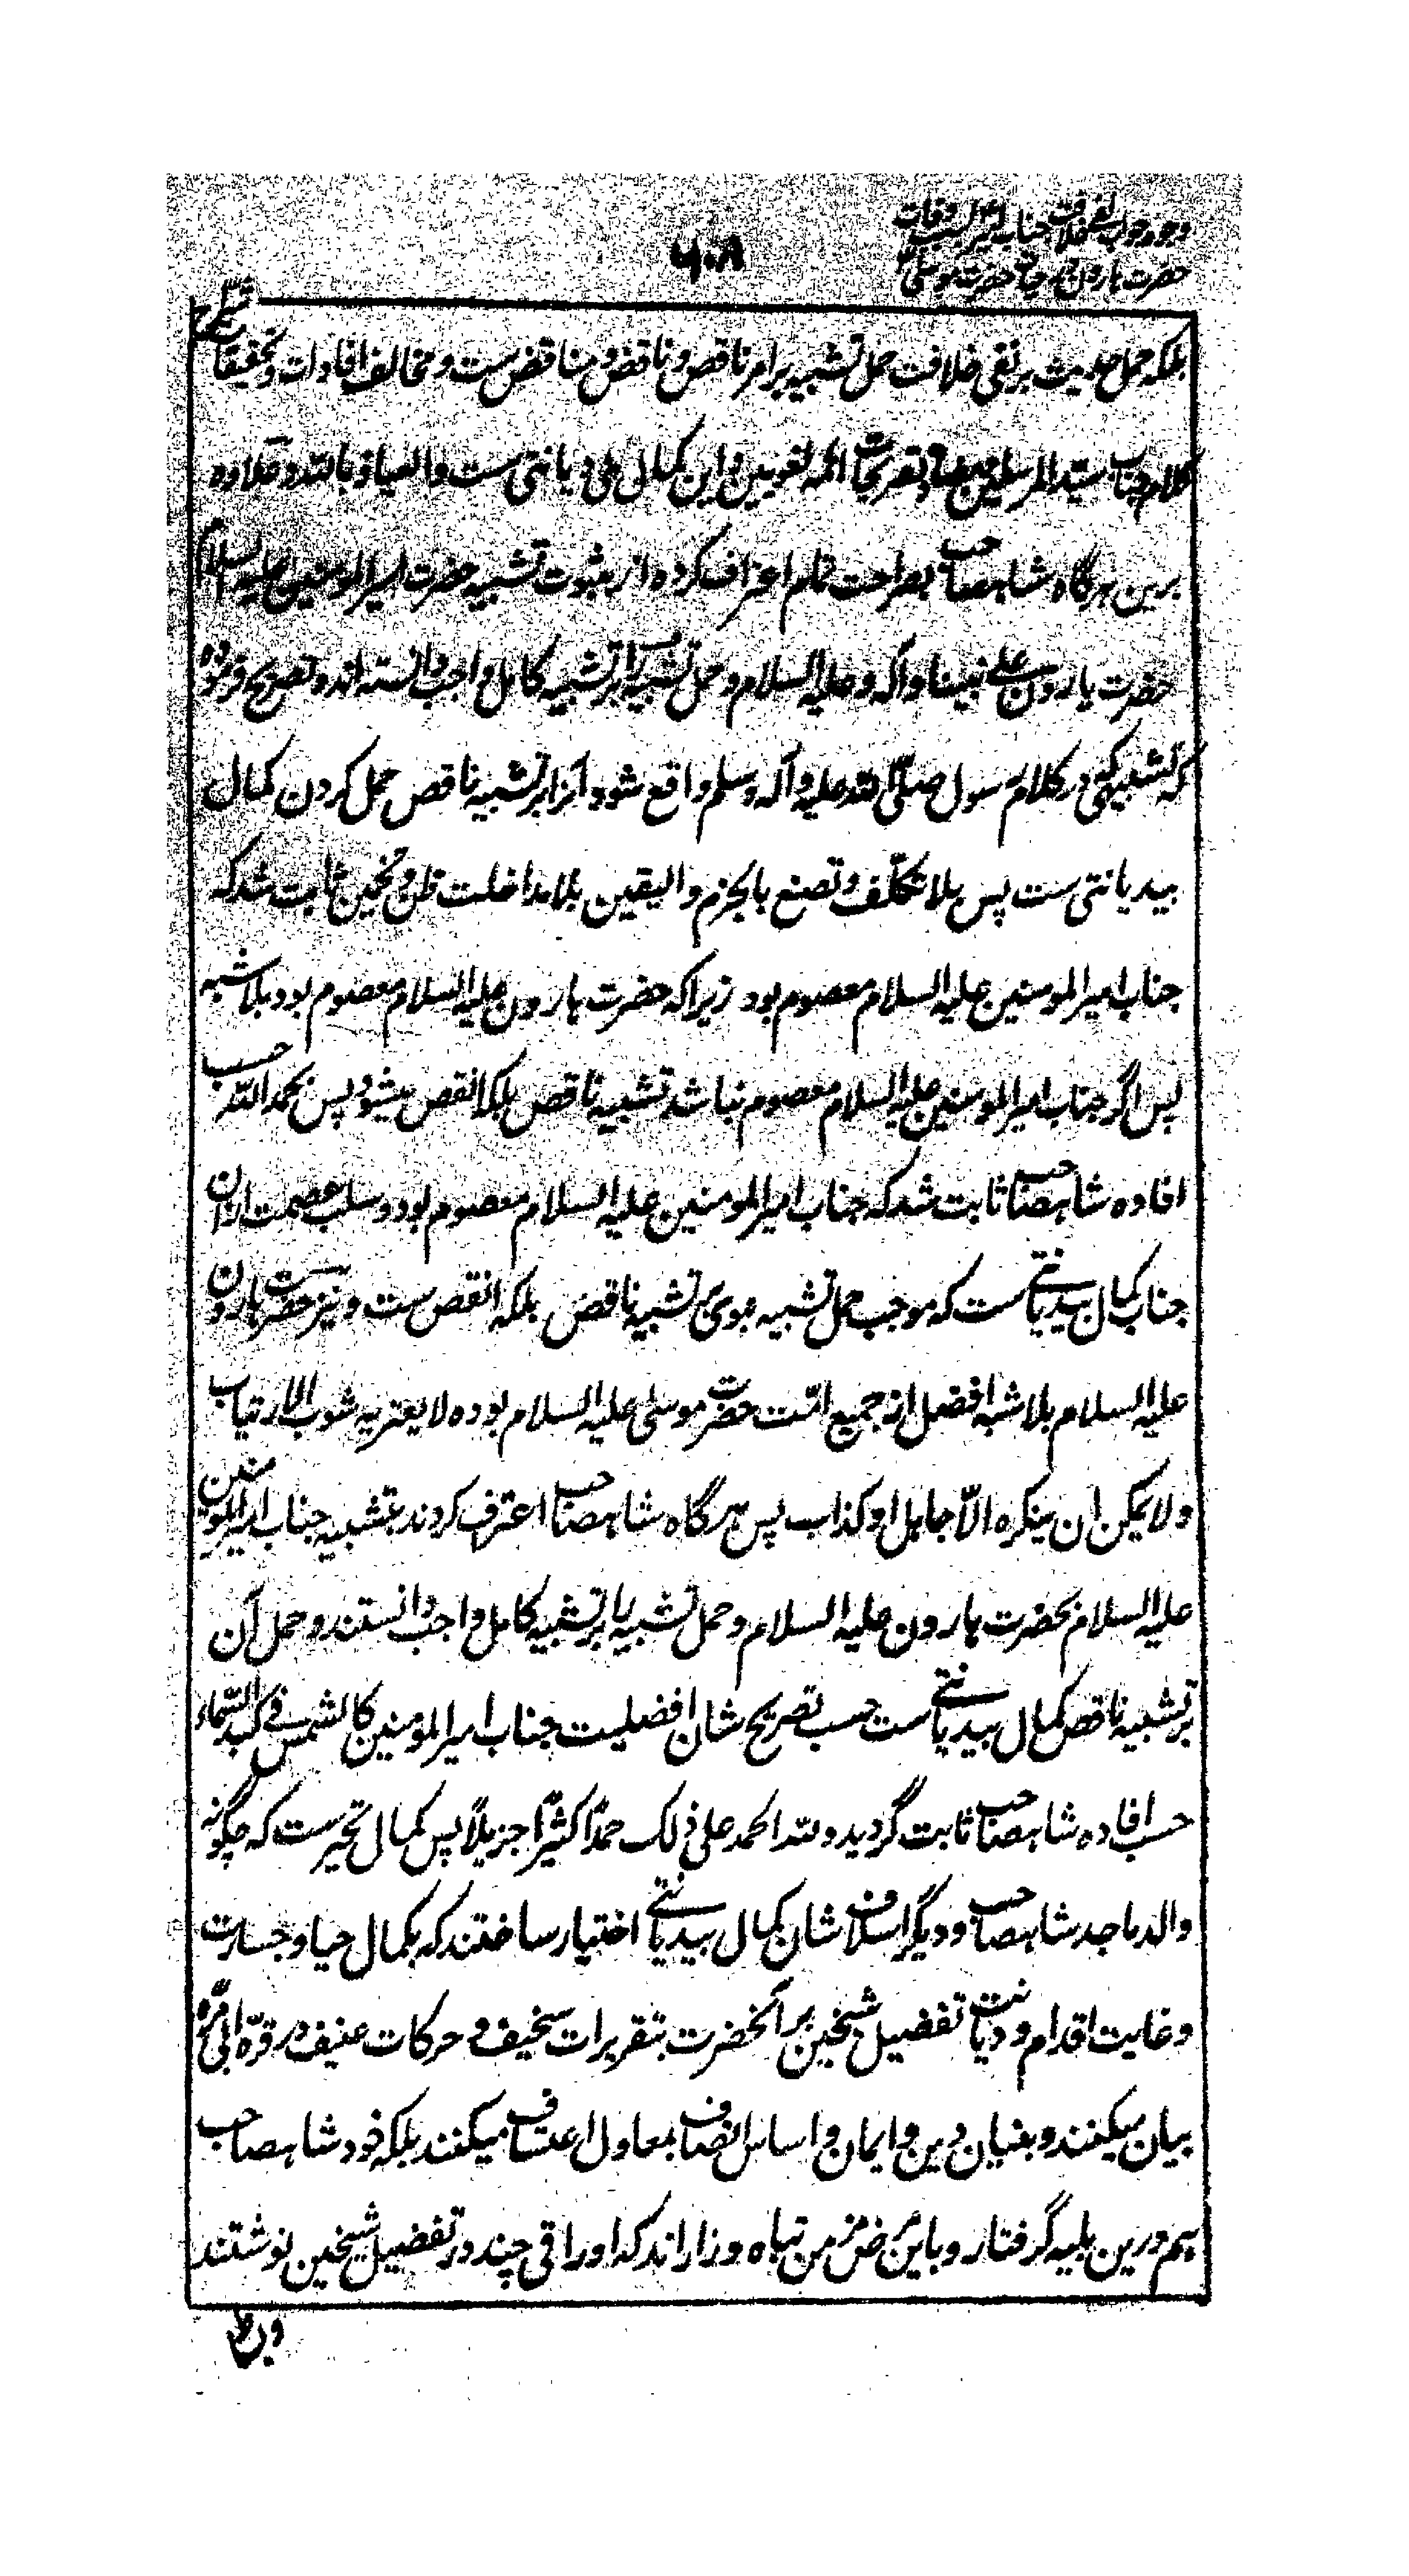 وجوه جواب نفی خلافت جناب امیر بسبب وفات
حضرت هارون در حیات حضرت موسی
۶۰۸
بلکه حمل حدیث بر نفی خلافت حمل تشبیه بر امر ناقص و ناقض و مناقض ست و مخالف افادات و تحقیقات شراح
کلام جناب سید المرسلین صلعم و تصریحات ائمه لغویین و این کمال بی دیانتی ست والعیاذ بالله و علاوه
برین هرگاه شاهصاحب بصراحت تمام اعتراف کرده از ثبوت تشبیه حضرت امیر المومنین علیه السلام
حضرت هارون علی نبینا و آله و علیه السلام و حمل تشبیه را بر تشبیه کامل واجب دانسته اند و تصریح فرموده
که تشبیهی که در کلام رسول صلی الله علیه و آله وسلم واقع شود آنرا بر تشبیه ناقص حمل کردن کمال
بیدیانتی ست پس بلا تکلف و تصنع بالجزم والیقین بلا مداخلت ظن و تخمین ثابت شد که
جناب امیر المومنین علیه السلام معصوم بود زیرا که حضرت هارون علیه السلام معصوم بود بلا شبه
پس اگر جناب امیر المومنین علیه السلام معصوم نباشد تشبیه ناقص بلکه انقص میشود پس بحمد الله حسب
افاده شاهصاحب ثابت شد که جناب امیر المومنین علیه السلام معصوم بود و سلب عصمت ازان
جناب کمال بیدیانتی ست که موجب حمل تشبیه نبوی بر تشبیه ناقص بلکه انقص ست و نیز حضرت هارون
علیه السلام بلا شبه افضل از جمیع امت حضرت موسی علیه السلام بوده لا یعتریه شوب الارتیاب
ولا یمکن ان ینکره الّا جاهل او کذاب پس هرگاه شاهصاحب اعتراف کردند بتشبیه جناب امیر المومنین
علیه السلام بحضرت هارون علیه السلام و حمل تشبیه را بر تشبیه کامل واجب دانستند و حمل آن
بر تشبیه ناقص کمال بیدیانتی ست حسب تصریح شان افضلیت جناب امیر المومنین کالشمس فی کبد السماء
حسب افاده شاهصاحب ثابت گردید و لله الحمد علی ذلک حمدًا کثیرًا جزیلًا پس کمال تحیر ست که چگونه
والد ماجد شاهصاحب و دیگر اسلاف شان کمال بیدیانتی اختیار ساختند که بکمال حیا و جسارت
و غایت اقدام و دیانت تفضیل شیخین بر آنحضرت بتقریرات سخیف و حرکات عنیف در قرّه ابی مرّه
بیان میکنند و بنیان دین و ایمان و اساس انصاف بمعاول اعتساف میکنند بلکه خود شاهصاحب
هم درین بلیه گرفتار و باین مرض مزمن تباه و زار اند که اوراقی چند در تفضیل شیخین نوشتند